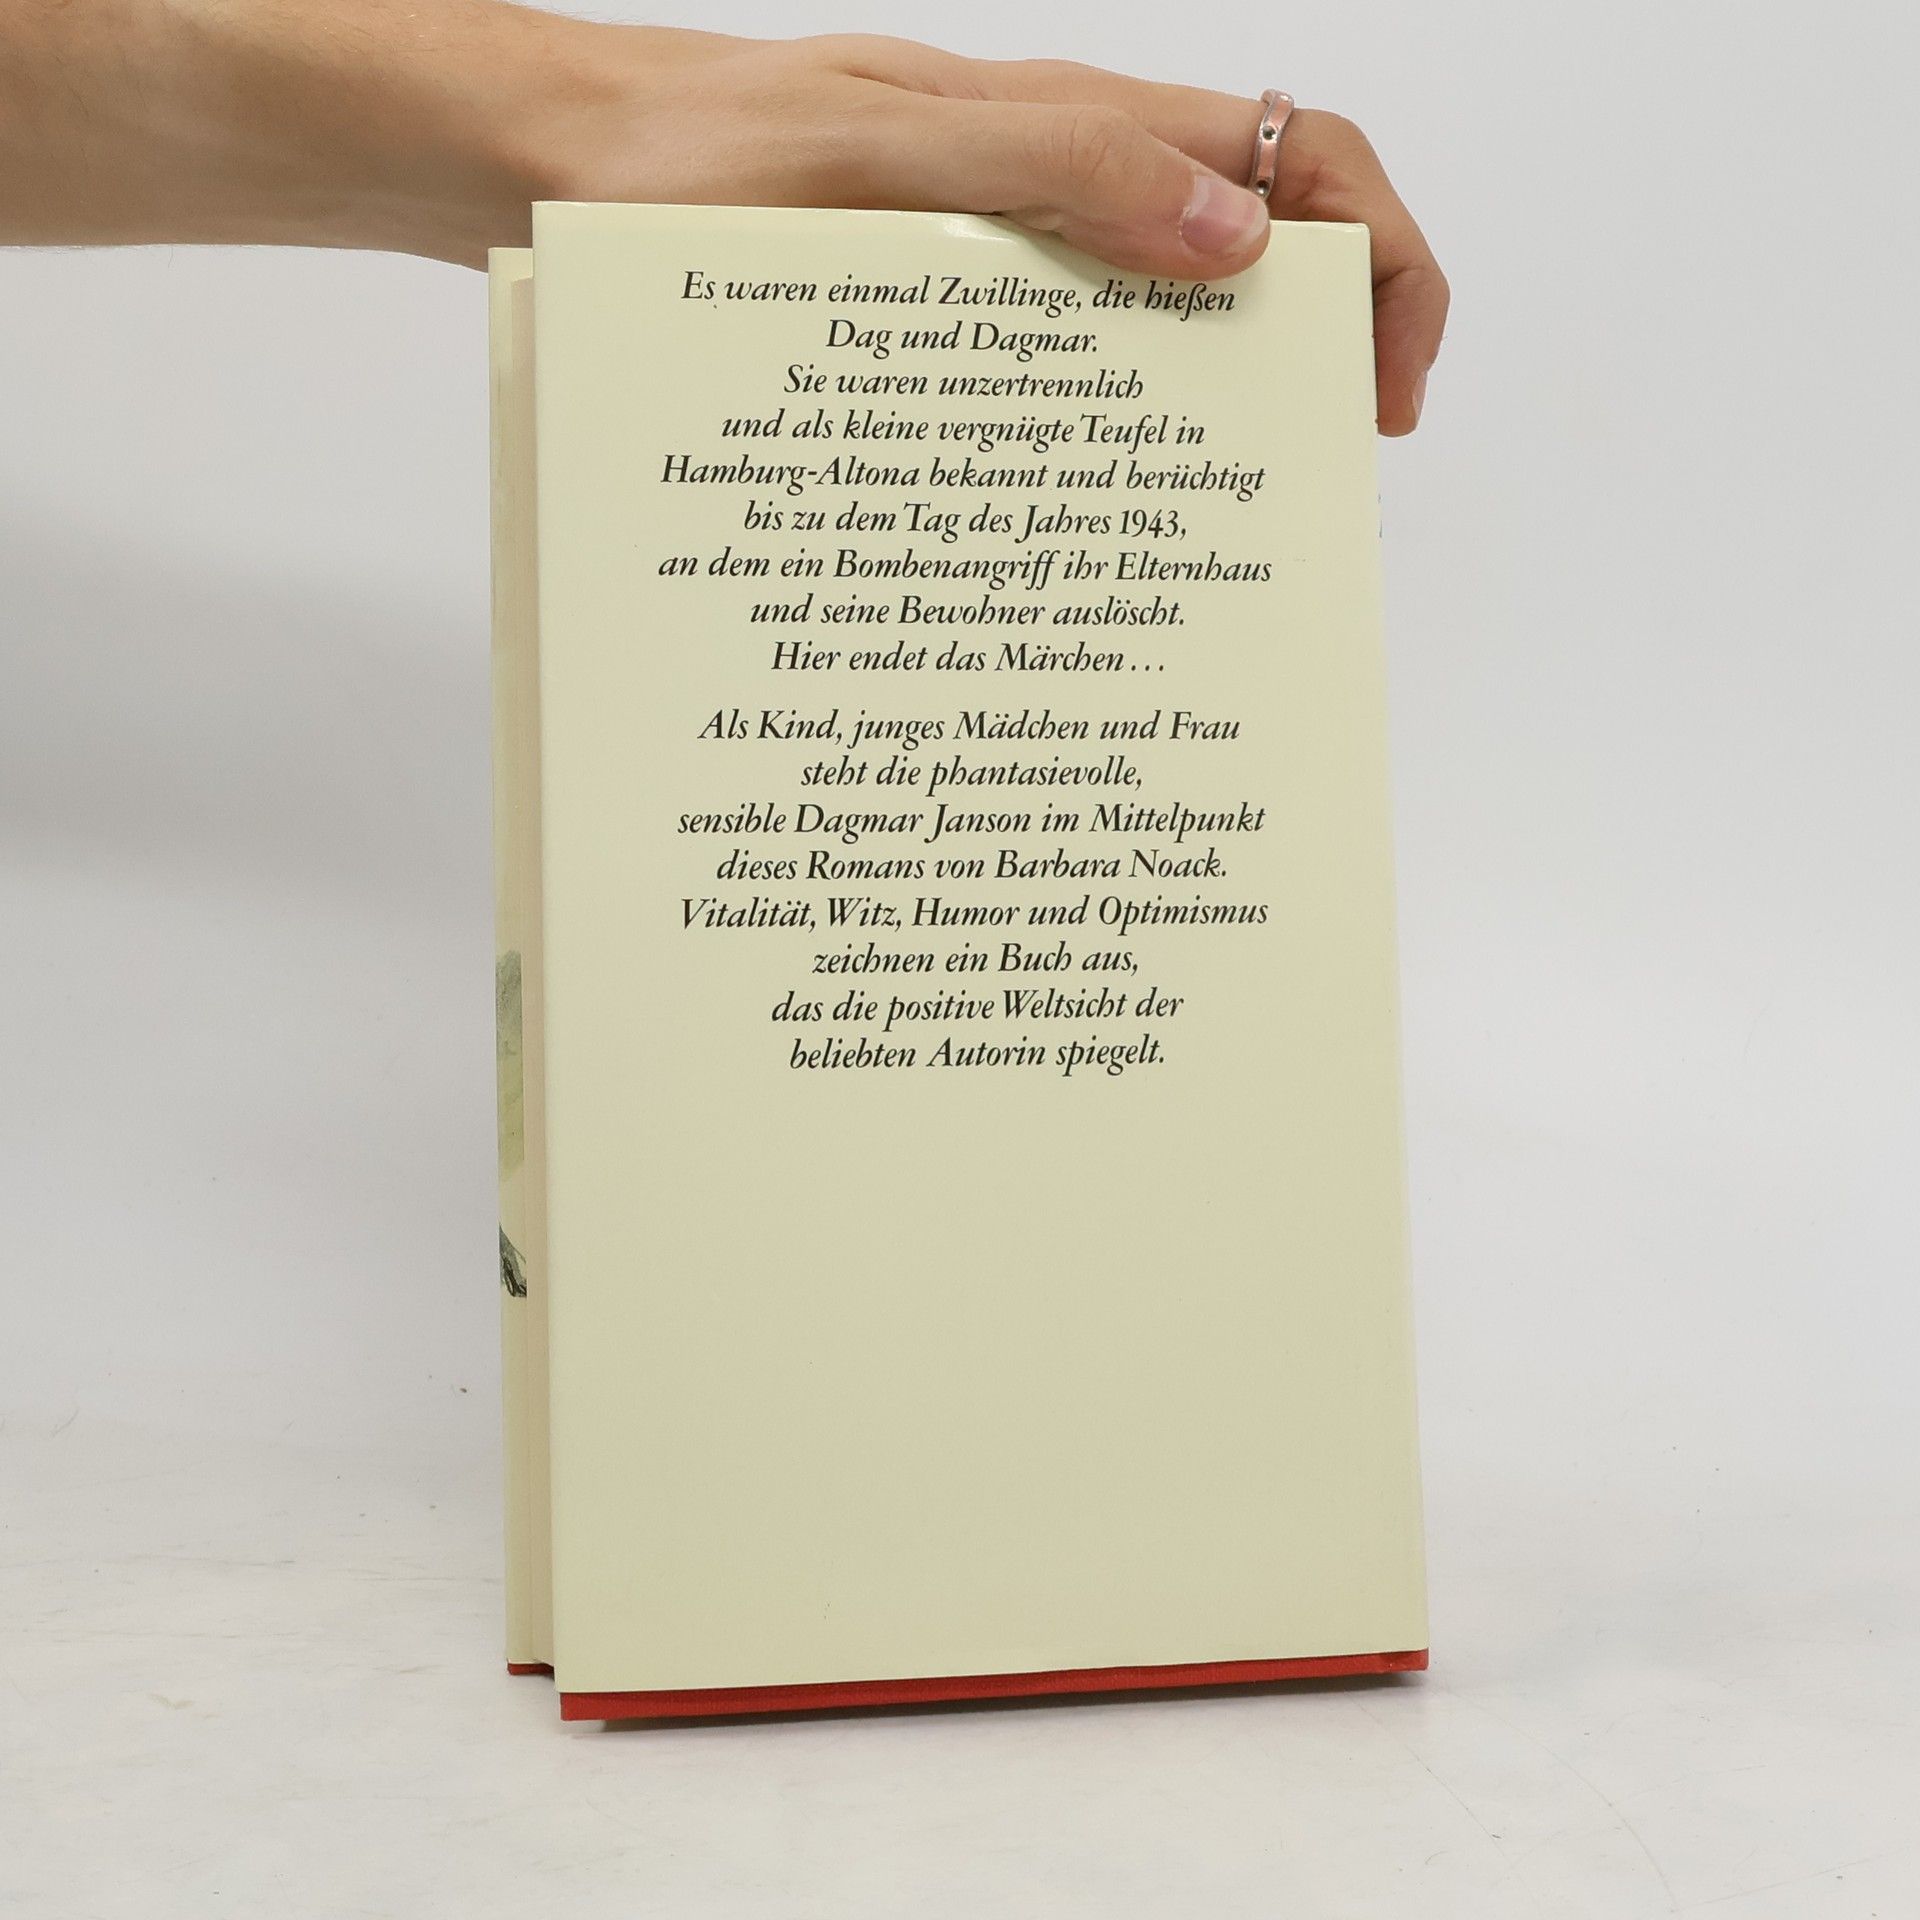 Es waren einmal Zwillinge, die hießen
Dag und Dagmar.
Sie waren unzertrennlich
und als kleine vergnügte Teufel in
Hamburg-Altona bekannt und berüchtigt
bis zu dem Tag des Jahres 1943,
an dem ein Bombenangriff ihr Elternhaus
und seine Bewohner auslöscht.
Hier endet das Märchen...
Als Kind, junges Mädchen und Frau
steht die phantasievolle,
sensible Dagmar Janson im Mittelpunkt
dieses Romans von Barbara Noack.
Vitalität, Witz, Humor und Optimismus
zeichnen ein Buch aus,
das die positive Weltsicht der
beliebten Autorin spiegelt.